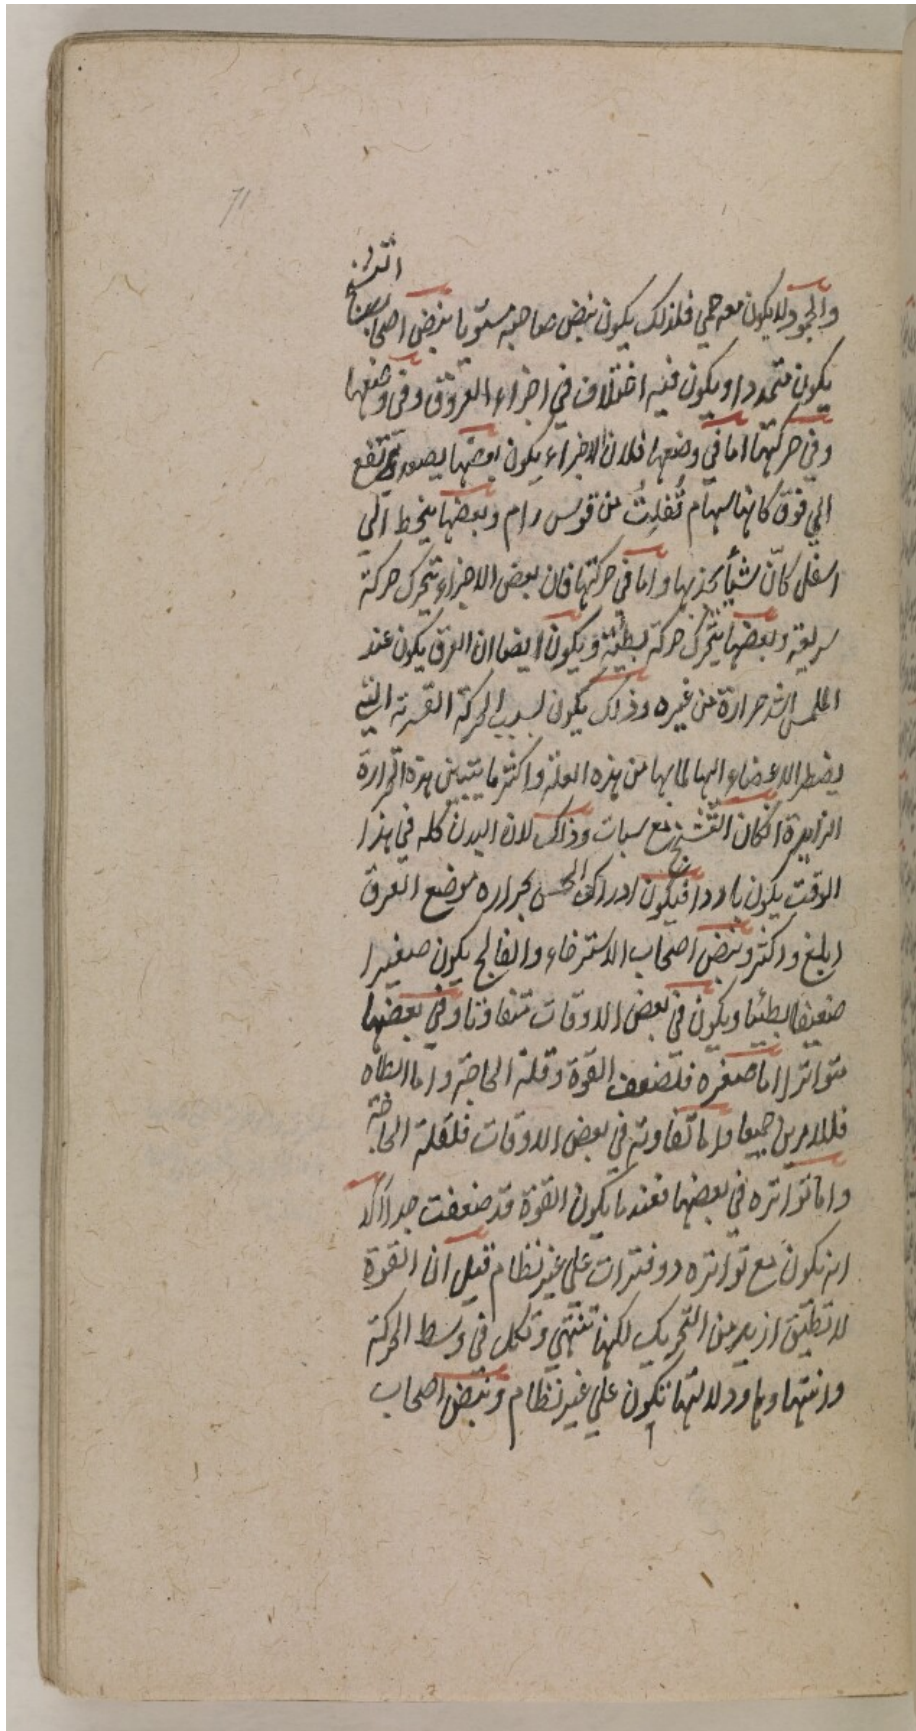 71
والجمود لا يكون معه حمي فلذلك يكون نبض صاحبه مستويا ونبض اصحاب التشنج
يكون متمددا ويكون فيه اختلاف في اجزاء العروق وفي وضعها
وفي حركتها اما في وضعها فلان الاجزاء يكون بعضها يصعد ويرتفع
الي فوق كانها سهام تُفلِتُ من قوس رام وبعضها ينحط الي
اسفل كانّ شيأ يجذبها واما في حركتها فان بعض الاجزاء يتحرك حركة
سريعة وبعضها يتحرك حركة بطيئة ويكون ايضا ان العرق يكون عند
الملمس اشد حرارة من غيره وذلك يكون لسبب الحركة القسرية التي
يضطر الاعضاء اليها لما بها من هذه العلة واكثر ما يتبين هذه الحرارة
الزايدة اذا كان التشنج مع سبات وذلك لان البدن كله في هذا
الوقت يكون باردا فيكون ادراك الحس بحراره موضع العرق
ابلغ واكثر ونبض اصحاب الاسترخاء والفالج يكون صغيرا
ضعيفا بطئيا ويكون في بعض الاوقات متفاوتا وفي بعضها
متواترا اما صغره فلضعف القوة وقلة الحاجة واما ابطاه
فللامرين جميعا واما تفاوته في بعض الاوقات فلقلة الحاجة
واما تواتره في بعضها فعند ما يكون القوة قد ضعفت جدا
انه تكون مع تواتره دو فترات علي غير نظام قبل ان القوة
لا تطيق ازيد من التحريك لكنها تنتهي وتكل في وسط الحركة
وانتهاوها ودلالتها تكون علي غير نظام ونبض اصحاب